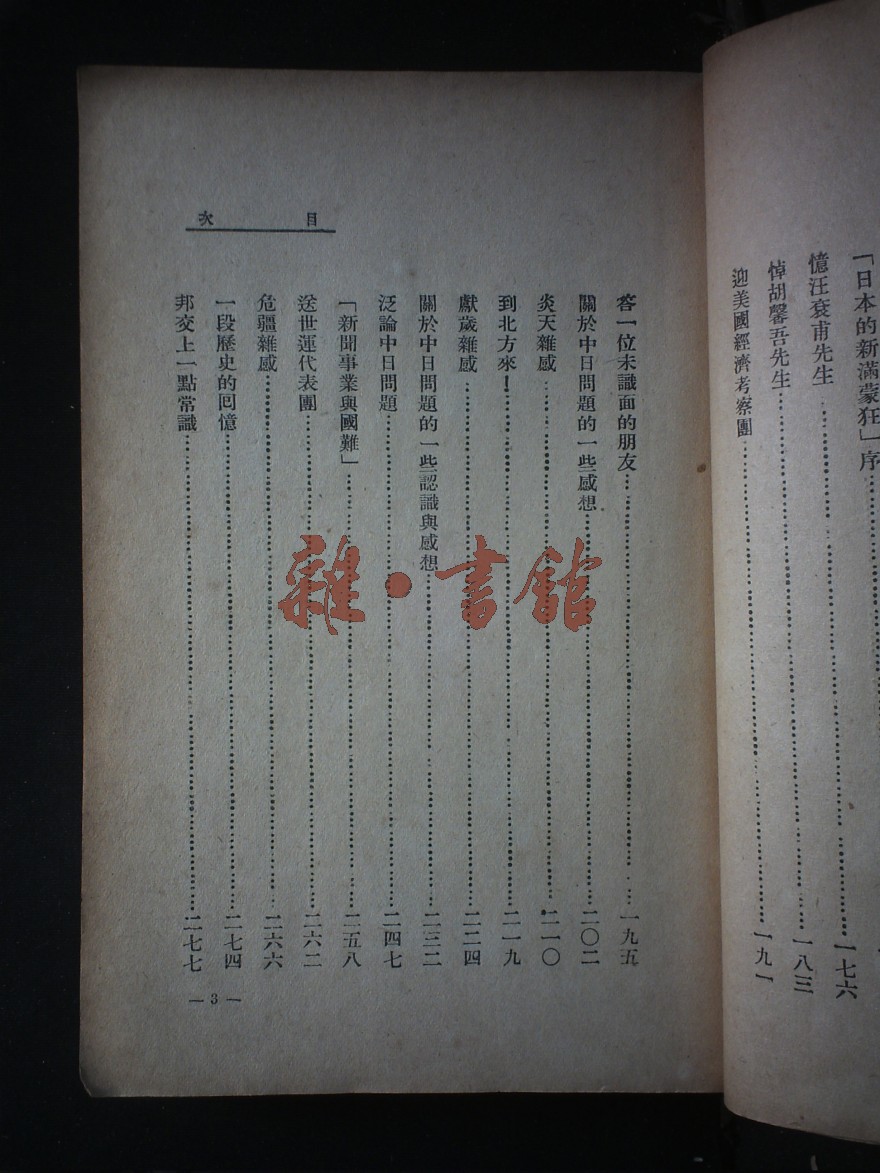 「日本的新滿蒙狂」序
憶汪袞甫先生 一七六
悼胡馨吾先生 一八三
迎美國經濟考察團 一九一
目次
答一位未識面的朋友 一九五
關於中日問題的一些感想 二〇二
炎天雜感 二一〇
到北方來！ 二一九
獻歲雜感 二二四
關於中日問題的一些認識與感想 二三二
泛論中日問題 二四七
「新聞事業與國難」 二五八
送世運代表團 二六二
危疆雜感 二六六
一段歷史的囘憶 二七四
邦交上一點常識 二七七
— 3 —
雜·書館